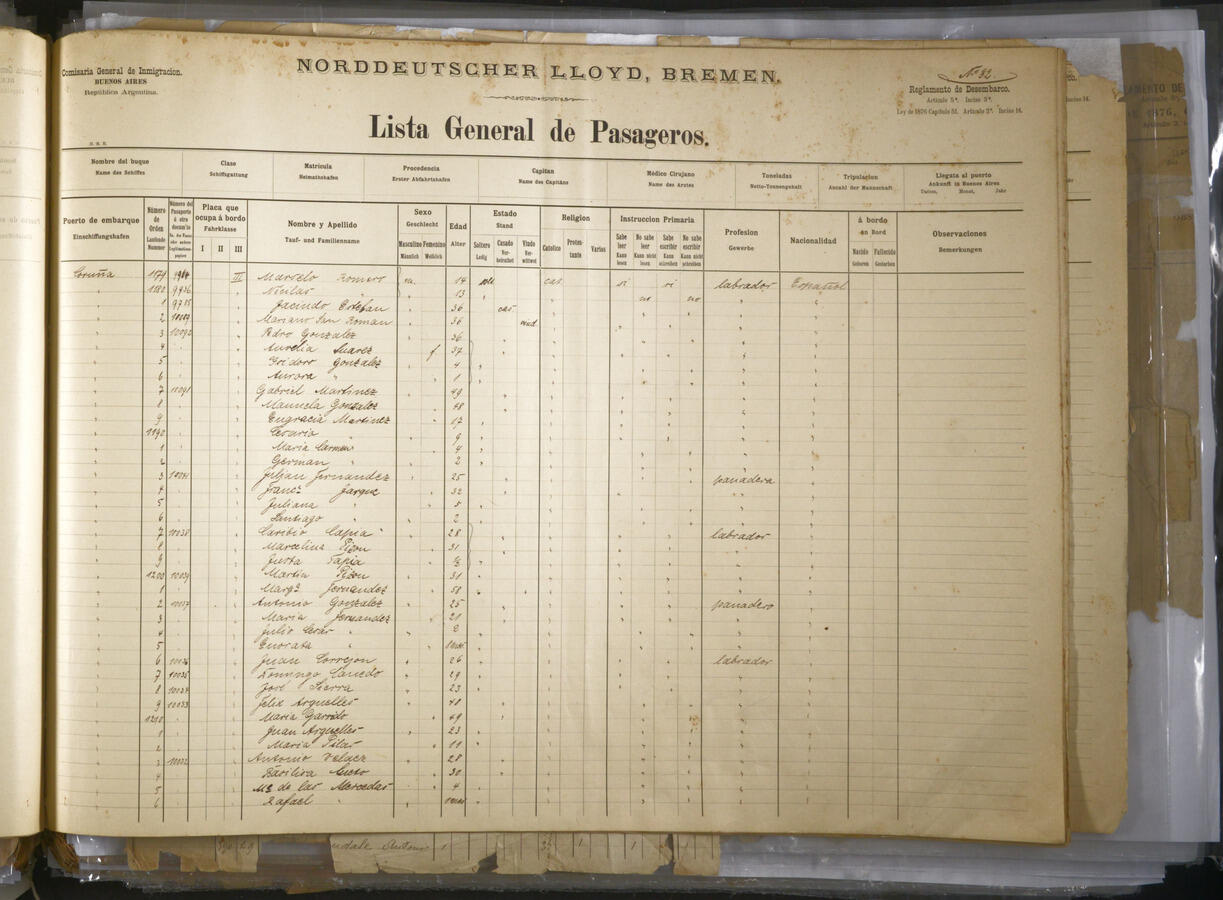 Comisaria General de Inmigracion.
BUENOS AIRES
República Argentina.
NORDDEUTSCHER LLOYD, BREMEN.
Nº 32.
Reglamento de Desembarco.
Articulo 5º. Inciso 3º.
Ley de 1876 Capitulo 51. Articulo 2º. Inciso 14.
Lista General de Pasageros.
Nombre del buque Clase Matricula Procedencia Capitan Médico Cirujano Toneladas Tripulacion Llegata al puerto
Name des Schiffes Schiffsgattung Heimathshafen Erster Abfahrtshafen Name des Capitäns Name des Arztes Netto-Tonnengehalt Anzahl der Mannschaft Ankunft in Buenos Aires
Datum, Monat, Jahr
Puerto de embarque Número de Orden Número del Pasaporte Placa que ocupa á bordo Nombre y Apellido Sexo Edad Estado Religion Instruccion Primaria Profesion Nacionalidad á bordo Observaciones
Einschiffungshafen Laufende Nummer Fahrklasse Tauf- und Familienname Geschlecht Alter Stand Gewerbe an Bord Bemerkungen
I II III Masculino Femenino Soltero Casado Viudo Catolico Protestante Varios Sabe leer No sabe leer Sabe escribir No sabe escribir Nacido Fallecido
Männlich Weiblich Ledig Verheirathet Verwittwet Kann lesen Kann nicht lesen Kann schreiben Kann nicht schreiben Geboren Gestorben
Coruña III Marcelo Romero m. 14 cat. si si labrador Español
1182 9736 Nicilas 13 no no
1 9735 Jacindo Estefan 36 cas
2 Mariano San Roman 36 viud
3 10092 Pedro Gonzalez 36
4 Aurelia Suarez f 37
5 Isidoro Gonzalez 4
6 Aurora " 1
7 10091 Gabriel Martinez 49
8 Manuela Gonzalez 48
9 Engracia Martinez 17
1190 Cesario 9
1 Maria Carmen 4
2 German " 2
3 10041 Julian Fernandez 25 panadera
4 Franca Jarque 32
5 Juliana " 5
6 Santiago " 2
7 10038 28 labrador
8 Marcelina Pizon 31
9 Justa Tapia
1200 10039 Martin Pizon 31
1 Marga Fernandez 58
2 10037 Antonio Gonzalez 25 panadero
3 Maria Fernandez 21
4 Julio Cesar " 2
5 "
6 Juan Correjon 26 labrador
7 10035 Domingo Canedo 29
8 10034 José Sierra 23
9 10033 Felix Arguelles 48
1210 Maria Garrido 49
1 Juan Arguelles 23
2 Maria Pilar 11
3 10032 Antonio Velaez 28
4 30
5 Ma de las Mercedas 4
6 Rafael "